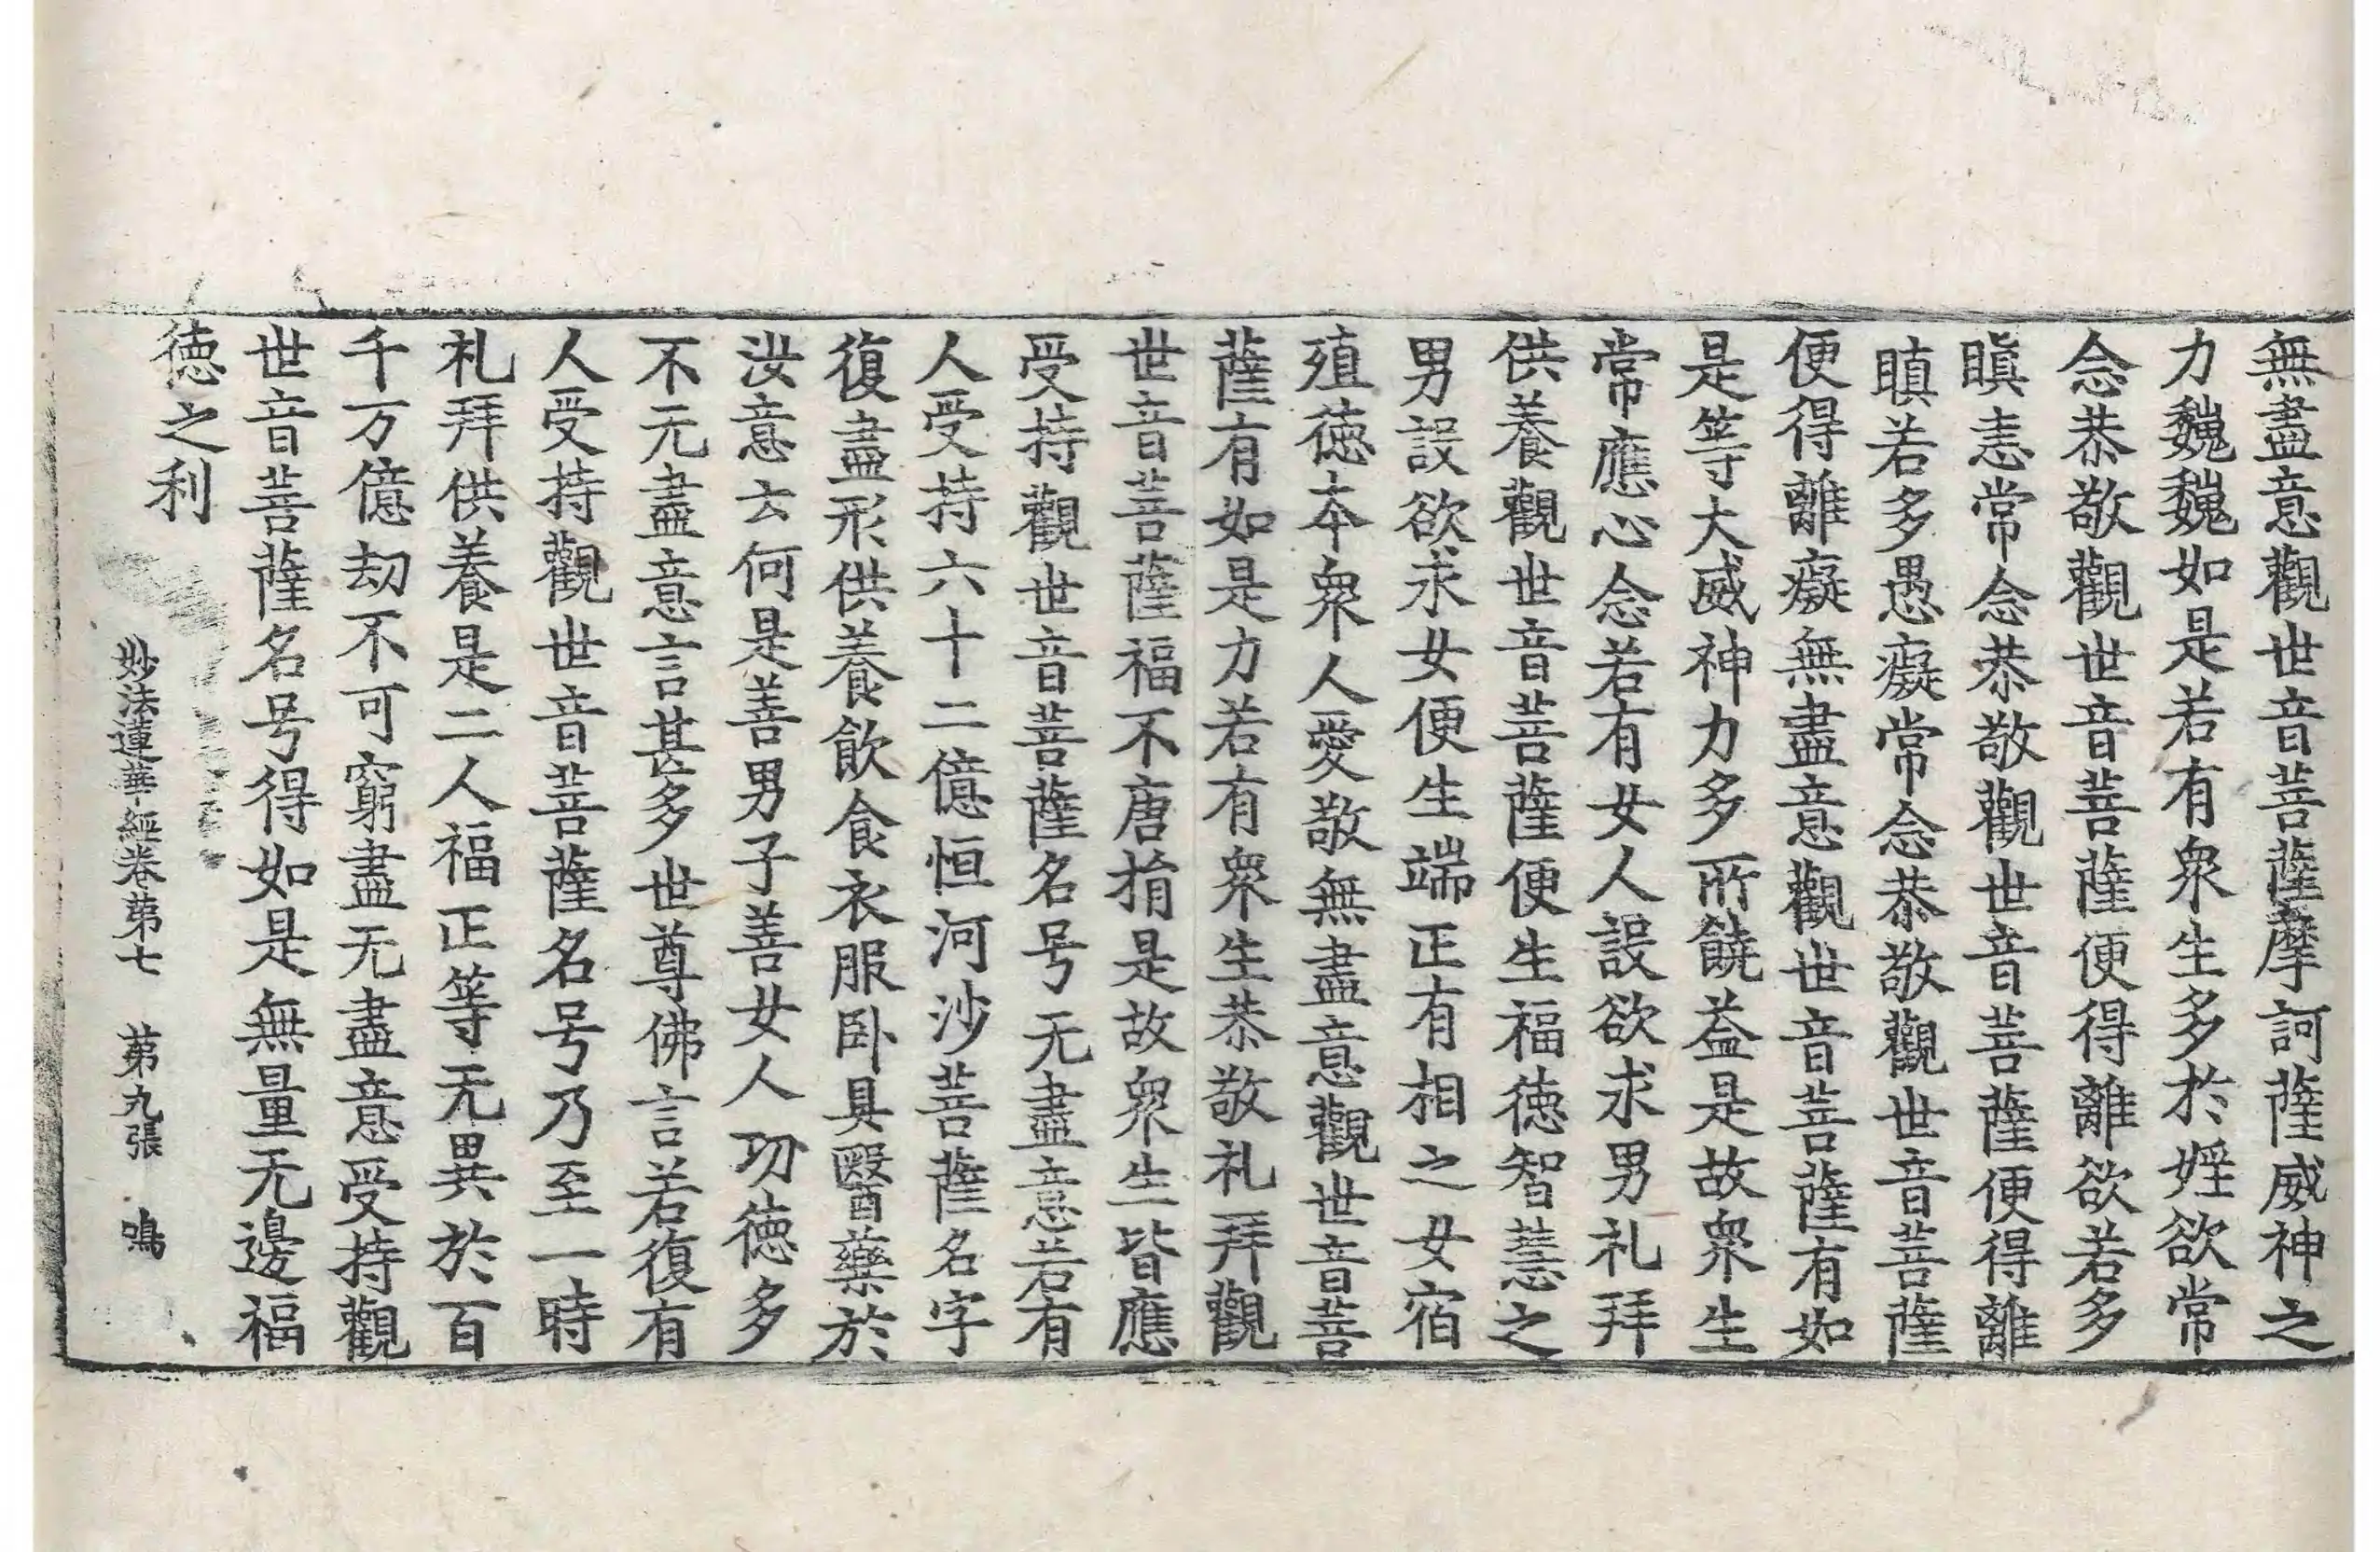 無盡意觀世音菩薩摩訶薩威神之
力巍巍如是若有衆生多於婬欲常
念恭敬觀世音菩薩便得離欲若多
瞋恚常念恭敬觀世音菩薩便得離
瞋若多愚癡常念恭敬觀世音菩薩
便得離癡無盡意觀世音菩薩有如
是等大威神力多所饒益是故衆生
常應心念若有女人設欲求男礼拜
供養觀世音菩薩便生福德智慧之
男設欲求女便生端正有相之女宿
殖德本衆人愛敬無盡意觀世音菩
薩有如是力若有衆生恭敬礼拜觀
世音菩薩福不唐捐是故衆生皆應
受持觀世音菩薩名号无盡意若有
人受持六十二億恒河沙菩薩名字
復盡形供養飲食衣服卧具醫藥於
汝意云何是善男子善女人功德多
不无盡意言甚多世尊佛言若復有
人受持觀世音菩薩名号乃至一時
礼拜供養是二人福正等无異於百
千万億劫不可窮盡无盡意受持觀
世音菩薩名号得如是無量无邊福
德之利
妙法蓮華經卷第七 第九張 鳴